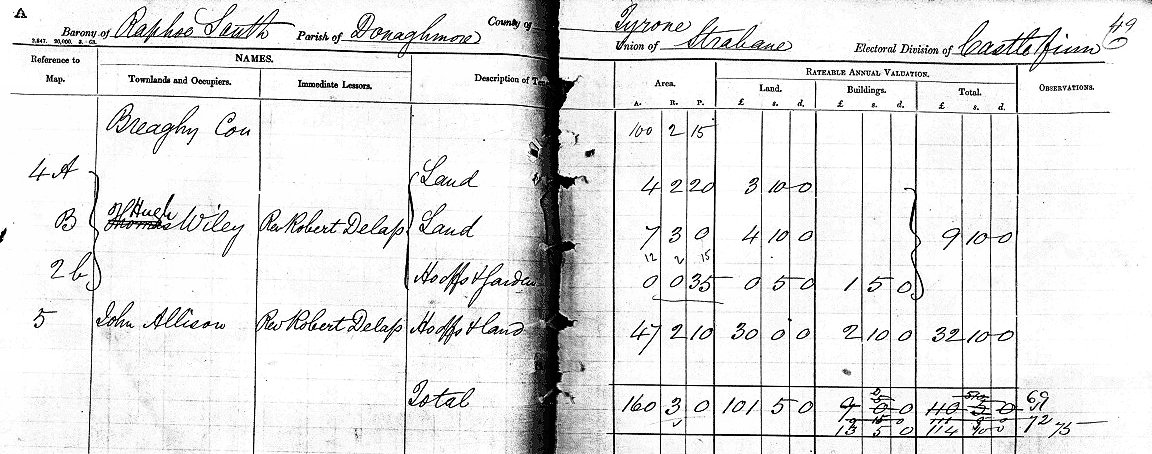 A
Barony of Raphoe South Parish of Donaghmore County of Tyrone Union of Strabane Electoral Division of Castlefinn 49
Reference to Map. NAMES. Description of Ten Area. RATEABLE ANNUAL VALUATION. OBSERVATIONS.
Townlands and Occupiers. Immediate Lessors. Land. Buildings. Total.
A. R. P. £ s. d. £ s. d. £ s. d.
Breaghy Con 100 2 15
4 A Land 4 2 20 3 10 0
B Thomas Hugh Wiley Rev Robert Delap Land 7 3 0 4 10 0 9 10 0
12 2 15
2 b Ho offs & garden 0 0 35 0 5 0 1 5 0
5 John Allison Rev Robert Delap Ho offs & land 47 2 10 30 0 0 2 10 0 32 10 0
Total 160 3 0 101 5 0 69
72 75
13 5 0 114 10 0